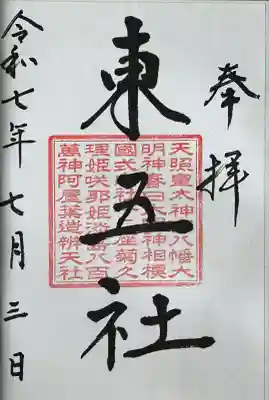 奉拝
東五社
天照皇大神八幡大
明神春日大神相模
國式社十三座菊久
理姫咲耶姫淡島八百
萬神阿屋葉造辨天社
令和七年七月三日